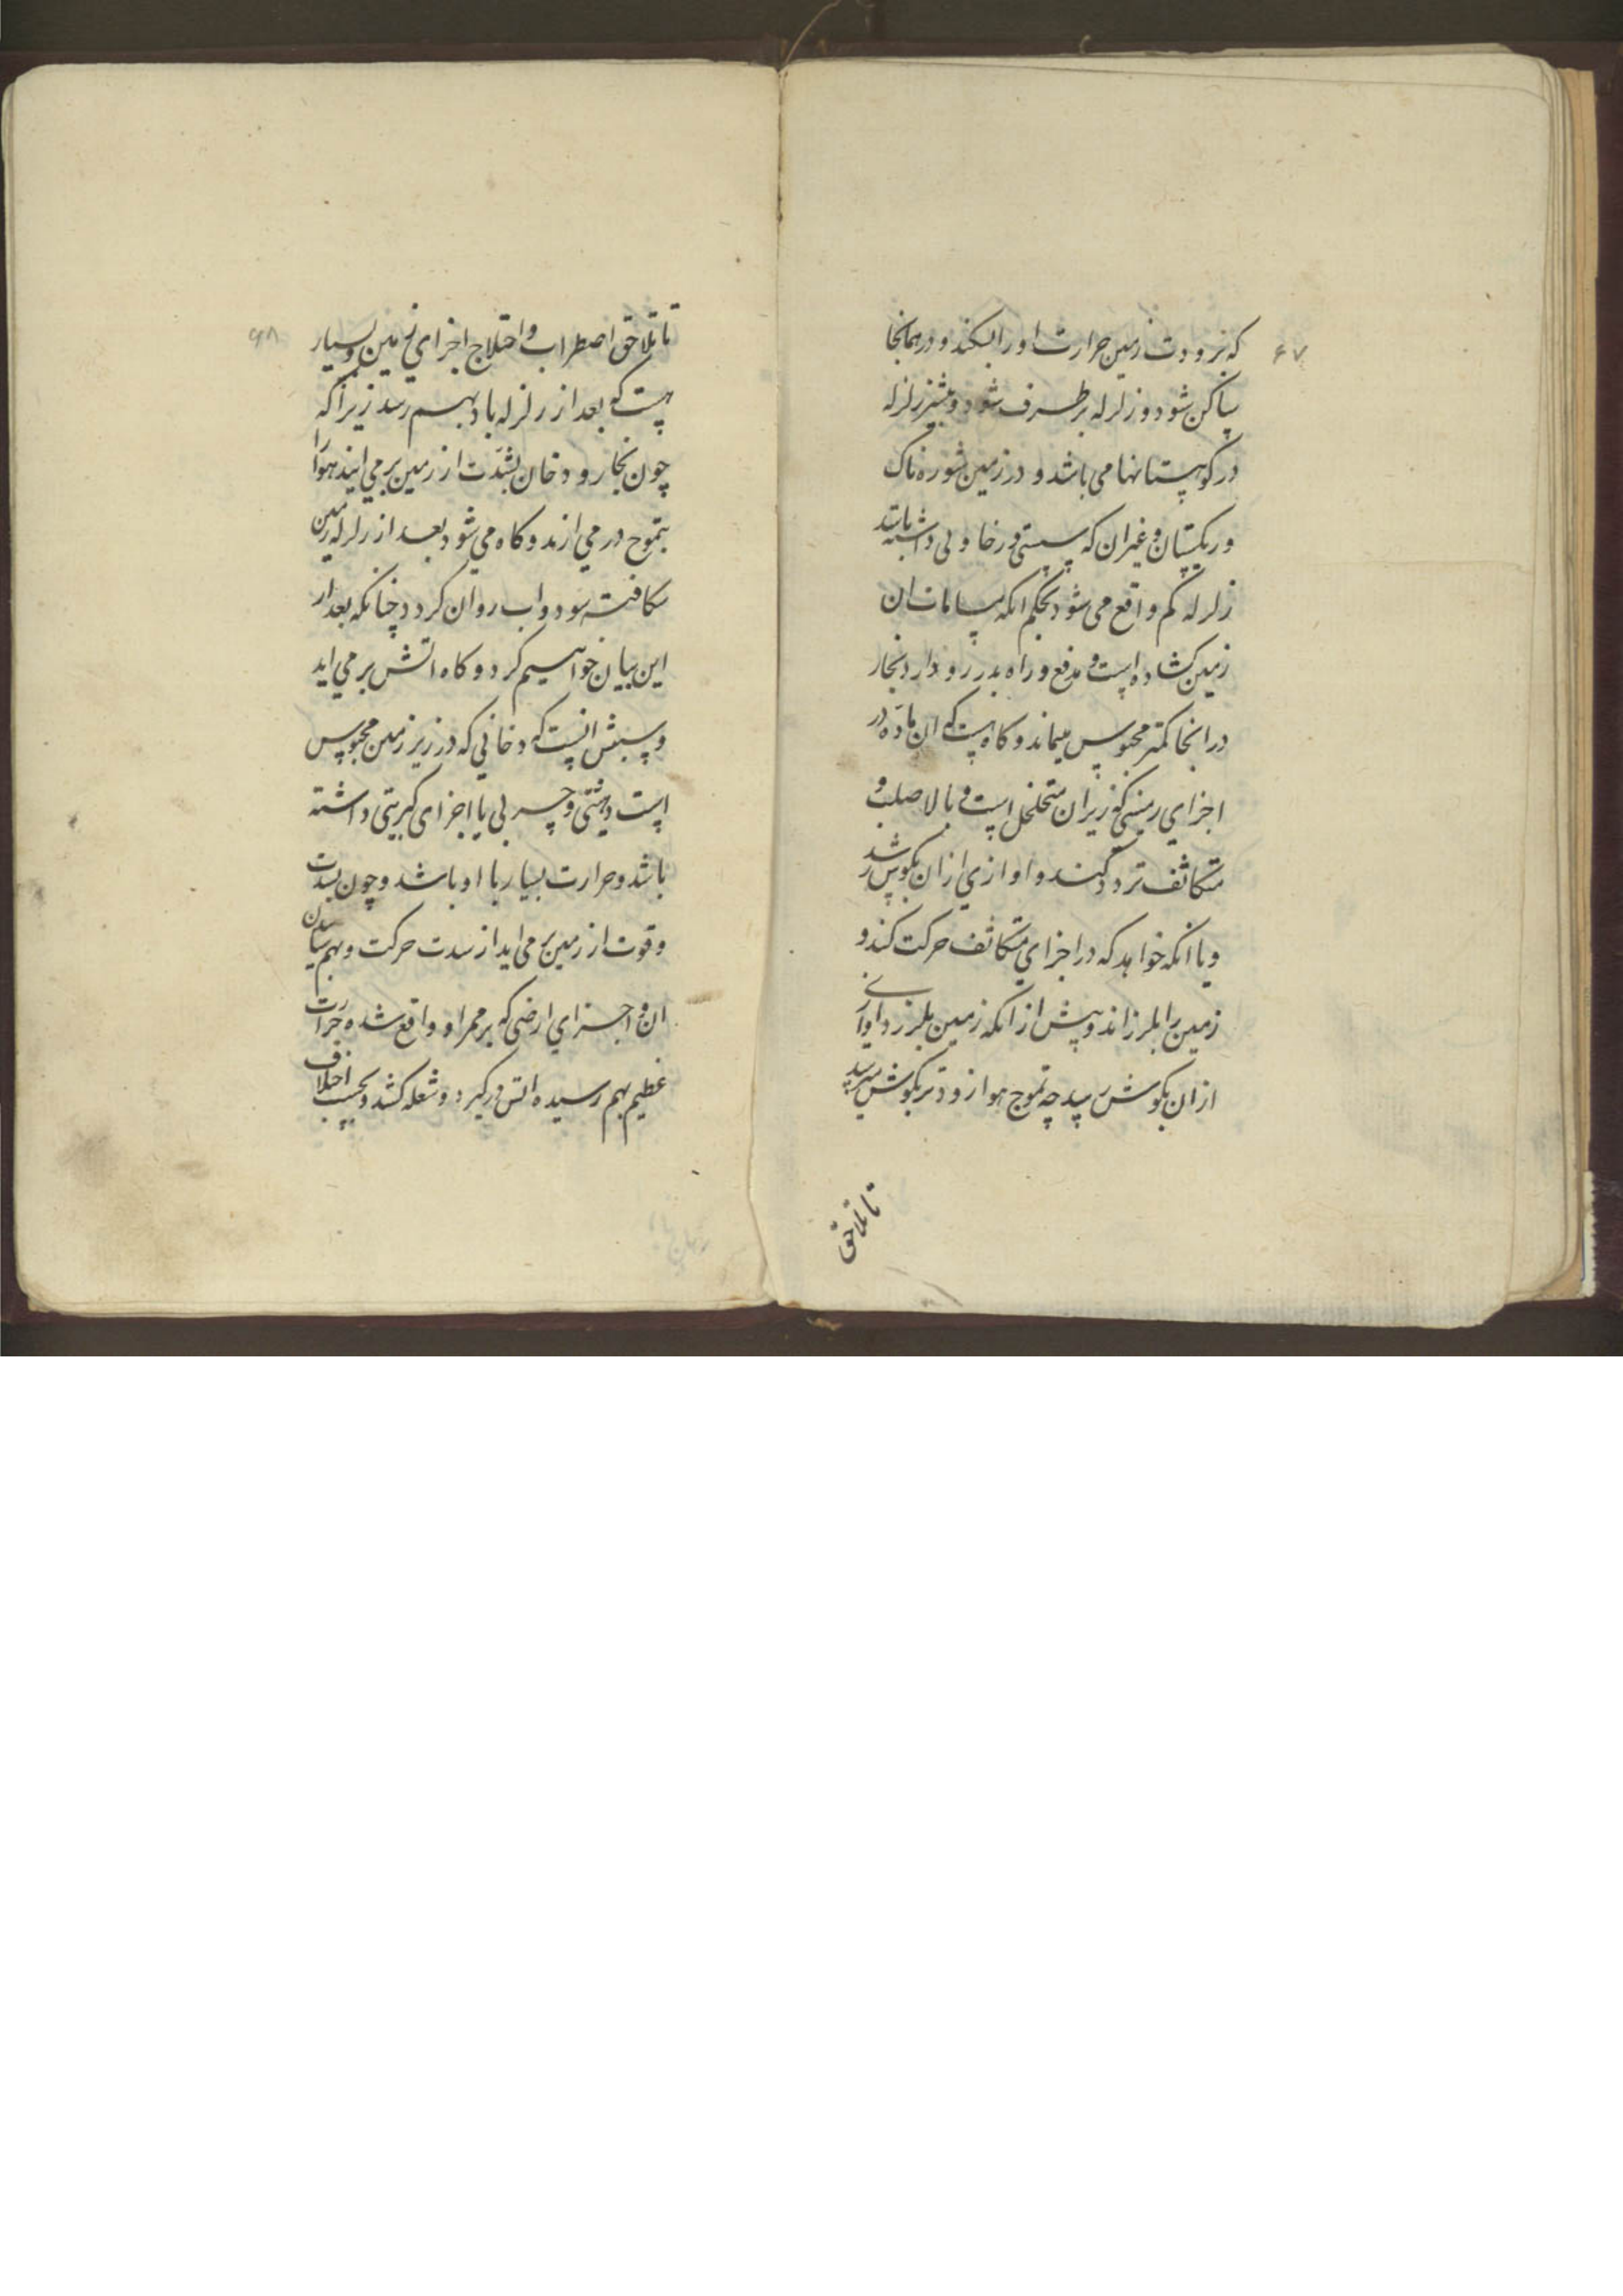 ۶۷
که برودت زمین حرارت او را بشکند و در همانجا
ساکن شود و زلزله برطرف شود و بیشتر زلزله
در کوهستانها می باشد و در زمین شوره ناک
و ریکستان و غیر ان که سستی و رخاوتی داشته باشد
زلزله کم واقع می شود بحکم انکه مسامات ان
زمین کشاده است و مدفع و راه بدر رو دارد بخار
در انجا کمتر محبوس میماند و کاه هست که ان ماده در
اجزاي زمینی که زیر ان متخلخل است و بالا صلب و
متکاثف تردد کند و اوازي از ان بکوش رسد
و یا انکه خواهد که در اجزاي متکاثف حرکت کند و
زمین را بلرزاند و پیش از انکه زمین بلرزد اوازی
از ان بکوش رسد چه تموج هوا زودتر بکوش میرسد
تا تلاحق
۶۸
تا تلاحق اضطراب و اختلاج اجزاي زمین و بسیار
هست که بعد از زلزله باد بهم رسد زیرا که
چون بخار و دخان بشدّت از زمین بر می ایند هوا را
بتموج در می ارند و کاه می شود بعد از زلزله زمین
شکافته شود و اب روان کردد چنانکه بعد از
این بیان خواهیم کرد و کاه اتش بر می اید
و سببش انست که دخانی که در زیر زمین محبوس
است دهنیتی و چربی یا اجزای کبریتی داشته
باشد و حرارت بسیار با او باشد و چون بشدت
و قوت از زمین بر می اید از شدت حرکت و بهم سائیدن
ان و اجزاي ارضی که بر ممر او واقع شده حرارت
عظیم بهم رسیده اتش در کیرد و شعله کشد و بحسب اختلاف